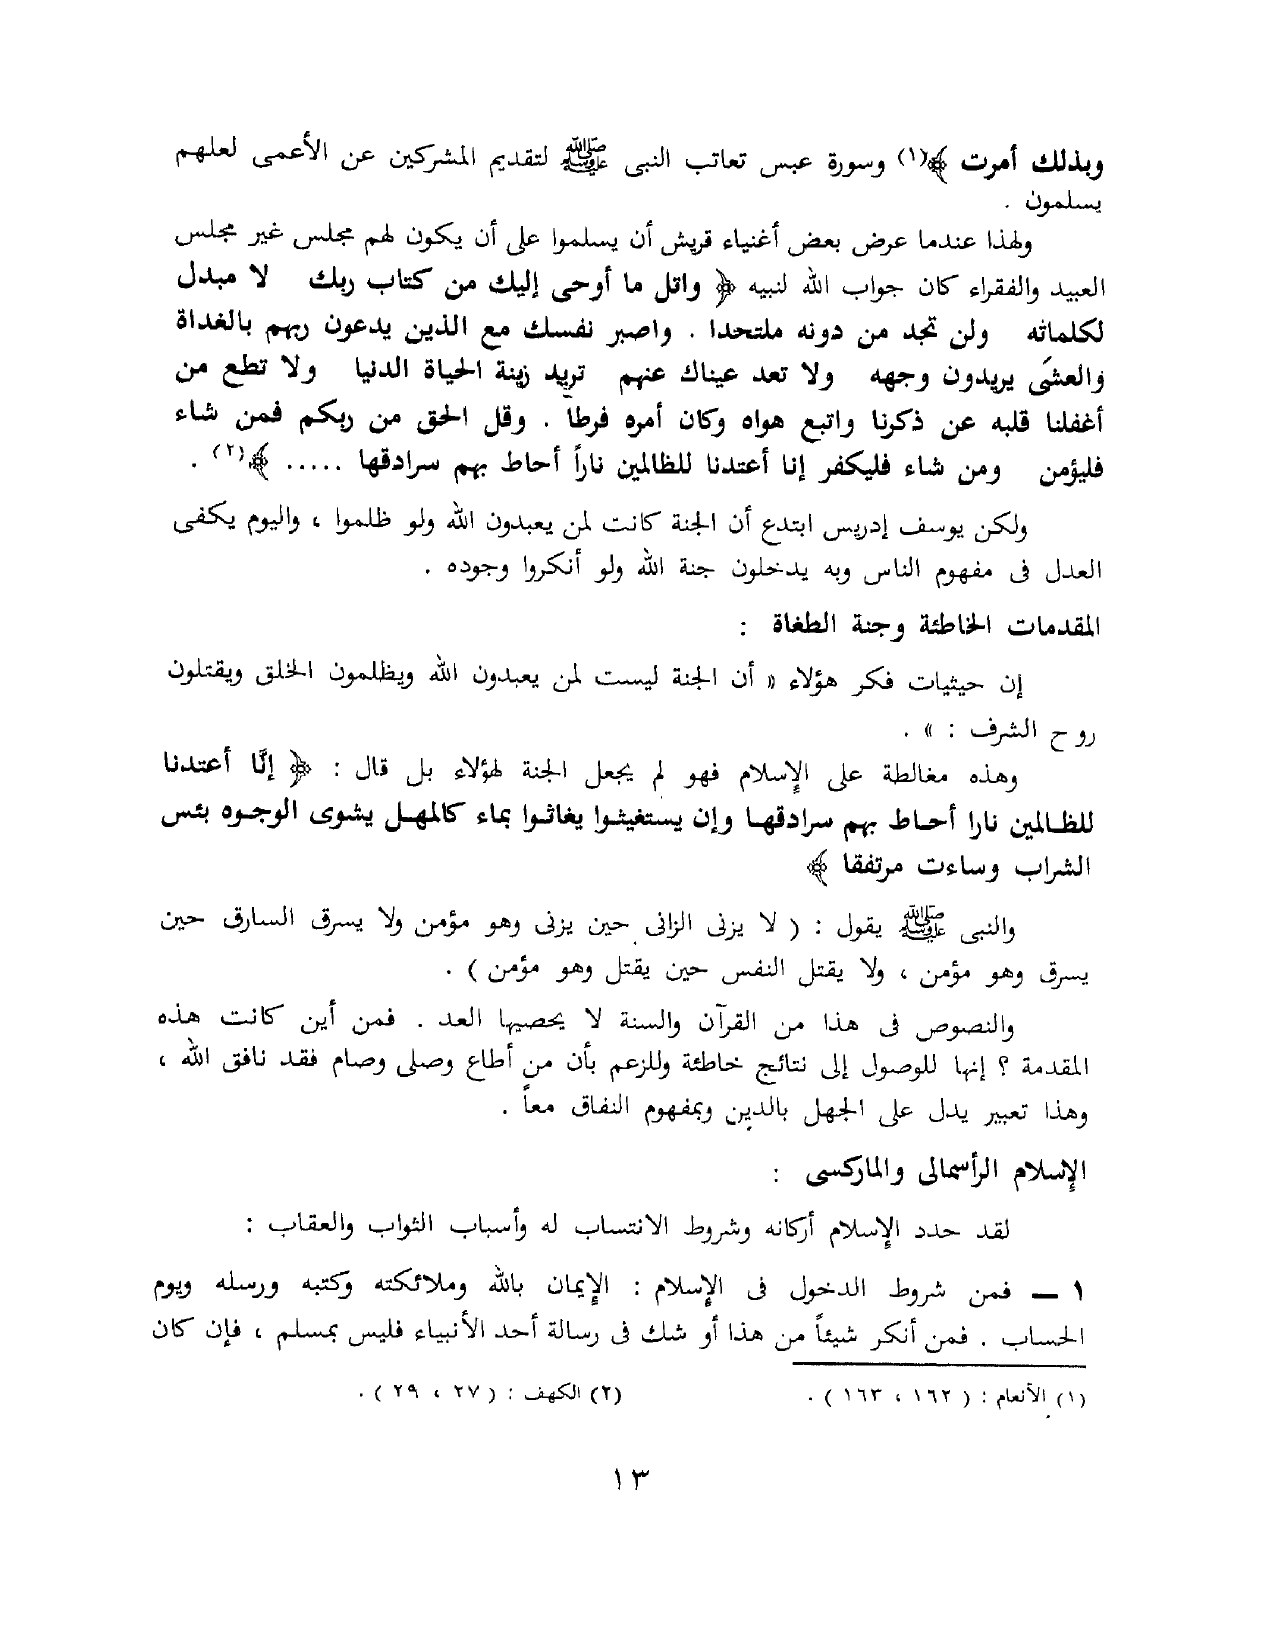 وبذلك أمرت ﴾(١) وسورة عبس تعاتب النبى ﷺ لتقديم المشركين عن الأعمى لعلهم
يسلمون .
ولهذا عندما عرض بعض أغنياء قريش أن يسلموا على أن يكون لهم مجلس غير مجلس
العبيد والفقراء كان جواب الله لنبيه ﴿ واتل ما أوحى إليك من كتاب ربك لا مبدل
لكلماته ولن تجد من دونه ملتحدا . واصبر نفسك مع الذين يدعون ربهم بالغداة
والعشى يريدون وجهه ولا تعد عيناك عنهم تريد زينة الحياة الدنيا ولا تطع من
أغفلنا قلبه عن ذكرنا واتبع هواه وكان أمره فرطا . وقل الحق من ربكم فمن شاء
فليؤمن ومن شاء فليكفر إنا أعتدنا للظالمين ناراً أحاط بهم سرادقها ..... ﴾(٢) .
ولكن يوسف إدريس ابتدع أن الجنة كانت لمن يعبدون الله ولو ظلموا ، واليوم يكفى
العدل فى مفهوم الناس وبه يدخلون جنة الله ولو أنكروا وجوده .
المقدمات الخاطئة وجنة الطغاة :
إن حيثيات فكر هؤلاء « أن الجنة ليست لمن يعبدون الله ويظلمون الخلق ويقتلون
روح الشرف : » .
وهذه مغالطة على الإسلام فهو لم يجعل الجنة لهؤلاء بل قال : ﴿ إنَّا أعتدنا
للظالمين نارا أحاط بهم سرادقها وإن يستغيثوا يغاثوا بماء كالمهل يشوى الوجوه بئس
الشراب وساءت مرتفقا ﴾
والنبى ﷺ يقول : ( لا يزنى الزانى حين يزنى وهو مؤمن ولا يسرق السارق حين
يسرق وهو مؤمن ، ولا يقتل النفس حين يقتل وهو مؤمن ) .
والنصوص فى هذا من القرآن والسنة لا يحصيها العد . فمن أين كانت هذه
المقدمة ؟ إنها للوصول إلى نتائج خاطئة وللزعم بأن من أطاع وصلى وصام فقد نافق الله ،
وهذا تعبير يدل على الجهل بالدين وبمفهوم النفاق معاً .
الإسلام الرأسمالى والماركسى :
لقد حدد الإسلام أركانه وشروط الانتساب له وأسباب الثواب والعقاب :
١ ـ فمن شروط الدخول فى الإسلام : الإيمان بالله وملائكته وكتبه ورسله ويوم
الحساب . فمن أنكر شيئاً من هذا أو شك فى رسالة أحد الأنبياء فليس بمسلم ، فإن كان
(١) الأنعام : ( ١٦٢ ، ١٦٣ ) . (٢) الكهف : ( ٢٧ ، ٢٩ ) .
١٣